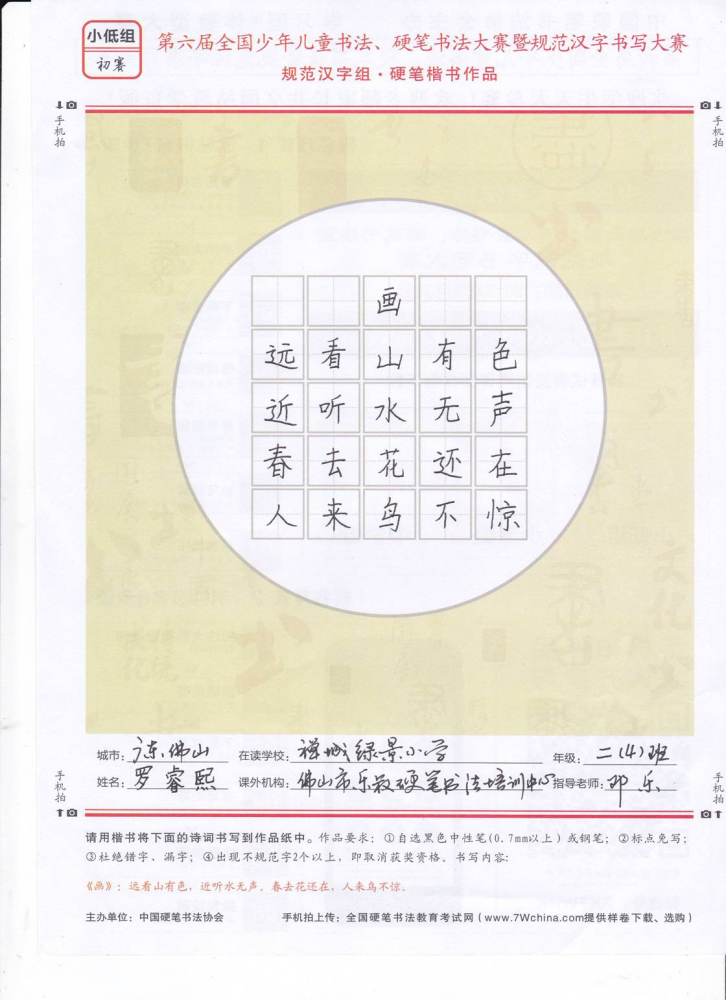 小低组
初赛
第六届全国少年儿童书法、硬笔书法大赛暨规范汉字书写大赛
规范汉字组·硬笔楷书作品
手机拍
手机拍
画
远看山有色
近听水无声
春去花还在
人来鸟不惊
城市：广东佛山 在读学校：禅城绿景小学 年级：二(4)班
姓名：罗睿熙 课外机构：佛山市乐毅硬笔书法培训中心 指导老师：邓乐
手机拍
手机拍
请用楷书将下面的诗词书写到作品纸中。作品要求：①自选黑色中性笔(0.7mm以上)或钢笔；②标点免写；
③杜绝错字、漏字；④出现不规范字2个以上，即取消获奖资格。书写内容：
《画》：远看山有色，近听水无声。春去花还在，人来鸟不惊。
主办单位：中国硬笔书法协会 手机拍上传：全国硬笔书法教育考试网（www.7Wchina.com提供样卷下载、选购）